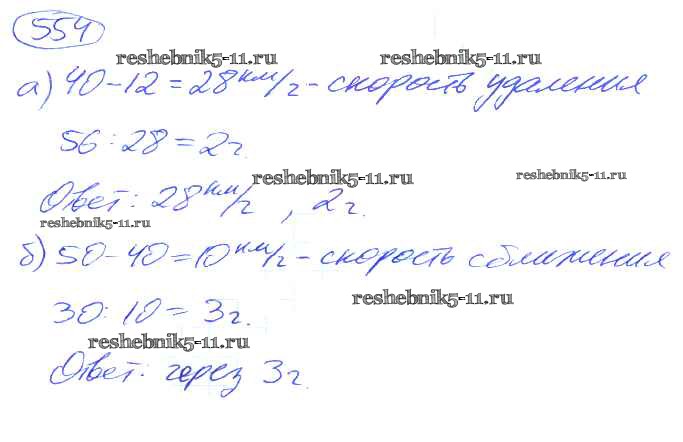 554
reshebnik5-11.ru reshebnik5-11.ru
а) 40-12=28км/г-скорость удаления
56:28=2г.
reshebnik5-11.ru reshebnik5-11.ru
Ответ: 28км/г, 2г.
reshebnik5-11.ru
б) 50-40=10км/г-скорость сближения
reshebnik5-11.ru
30:10=3г.
reshebnik5-11.ru
Ответ: через 3г.